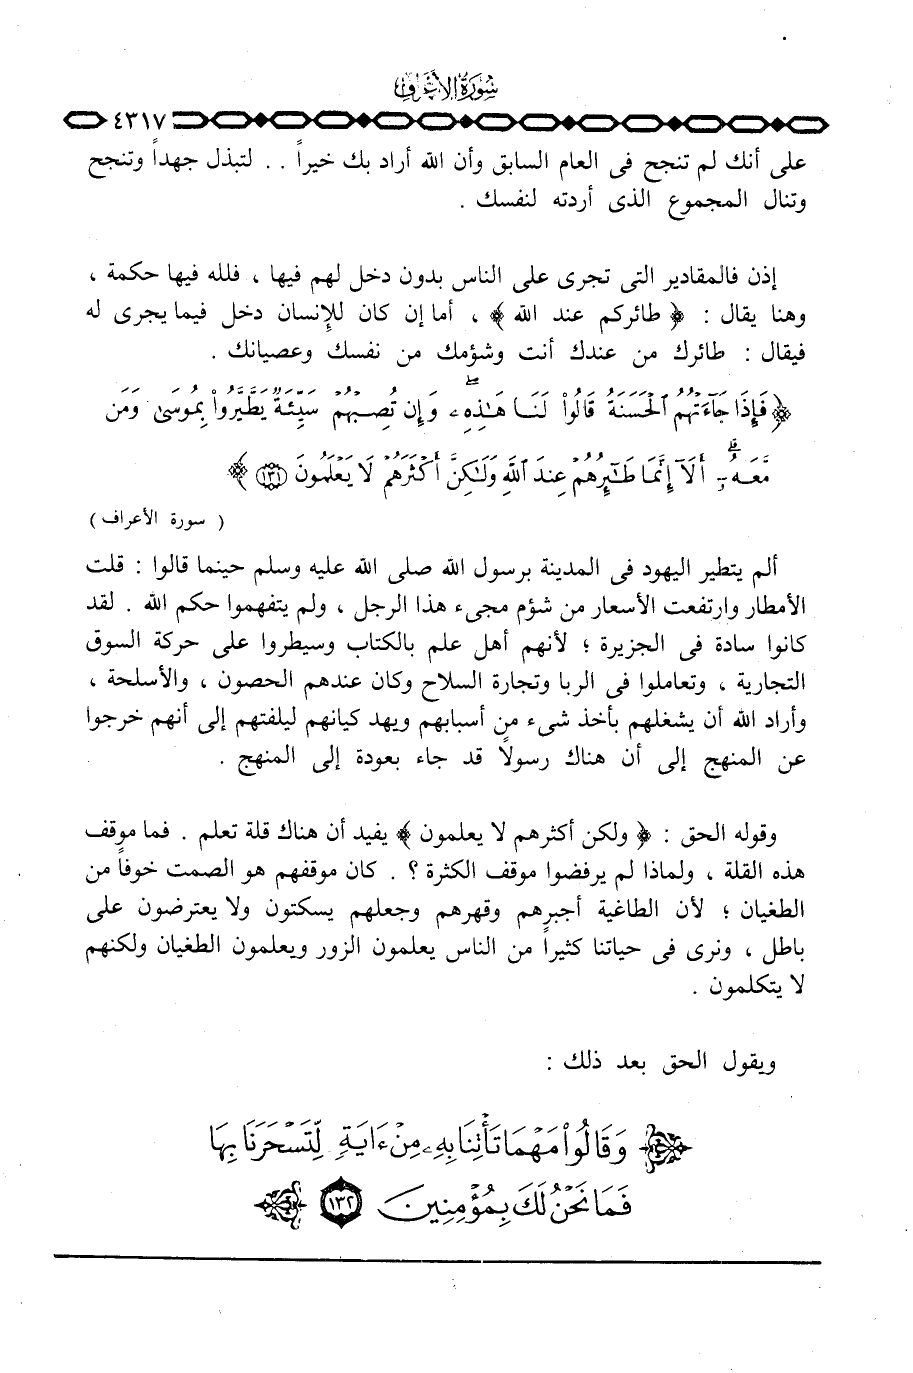 سورة الأعراف
٤٣١٧
على أنك لم تنجح فى العام السابق وأن الله أراد بك خيراً . . لتبذل جهداً وتنجح
وتنال المجموع الذى أردته لنفسك .
إذن فالمقادير التى تجرى على الناس بدون دخل لهم فيها ، فلله فيها حكمة ،
وهنا يقال : ﴿ طائركم عند الله ﴾ ، أما إن كان للإنسان دخل فيما يجرى له
فيقال : طائرك من عندك أنت وشؤمك من نفسك وعصيانك .
﴿ فَإِذَا جَآءَتْهُمُ ٱلْحَسَنَةُ قَالُوا۟ لَنَا هَٰذِهِۦ ۖ وَإِن تُصِبْهُمْ سَيِّئَةٌ يَطَّيَّرُوا۟ بِمُوسَىٰ وَمَن
مَّعَهُۥٓ ۗ أَلَآ إِنَّمَا طَٰٓئِرُهُمْ عِندَ ٱللَّهِ وَلَٰكِنَّ أَكْثَرَهُمْ لَا يَعْلَمُونَ ١٣١ ﴾
( سورة الأعراف )
ألم يتطير اليهود فى المدينة برسول الله صلى الله عليه وسلم حينما قالوا : قلت
الأمطار وارتفعت الأسعار من شؤم مجىء هذا الرجل ، ولم يتفهموا حكم الله . لقد
كانوا سادة فى الجزيرة ؛ لأنهم أهل علم بالكتاب وسيطروا على حركة السوق
التجارية ، وتعاملوا فى الربا وتجارة السلاح وكان عندهم الحصون ، والأسلحة ،
وأراد الله أن يشغلهم بأخذ شىء من أسبابهم ويهد كيانهم ليلفتهم إلى أنهم خرجوا
عن المنهج إلى أن هناك رسولاً قد جاء بعودة إلى المنهج .
وقوله الحق : ﴿ ولكن أكثرهم لا يعلمون ﴾ يفيد أن هناك قلة تعلم . فما موقف
هذه القلة ، ولماذا لم يرفضوا موقف الكثرة ؟ . كان موقفهم هو الصمت خوفاً من
الطغيان ؛ لأن الطاغية أجبرهم وقهرهم وجعلهم يسكتون ولا يعترضون على
باطل ، ونرى فى حياتنا كثيراً من الناس يعلمون الزور ويعلمون الطغيان ولكنهم
لا يتكلمون .
ويقول الحق بعد ذلك :
﴿ وَقَالُوا۟ مَهْمَا تَأْتِنَا بِهِۦ مِنْ ءَايَةٍ لِّتَسْحَرَنَا بِهَا
فَمَا نَحْنُ لَكَ بِمُؤْمِنِينَ ١٣٢ ﴾